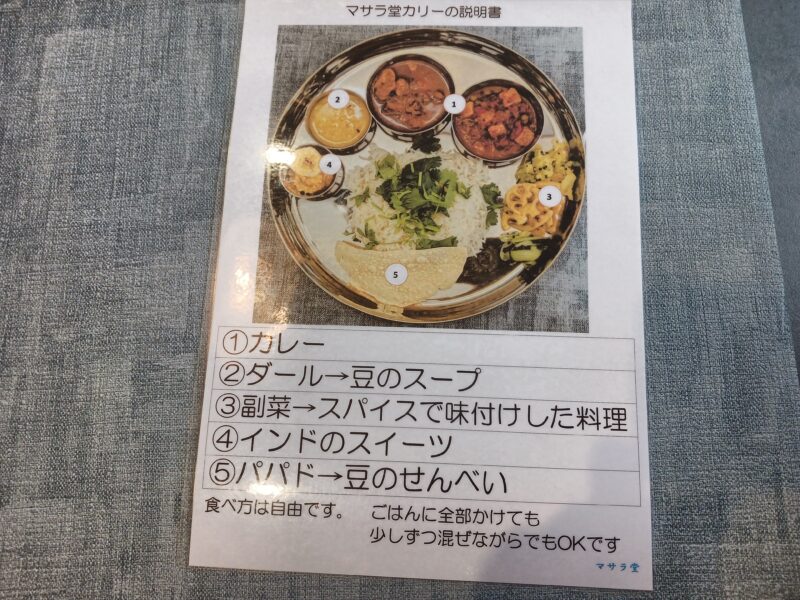 マサラ堂カリーの説明書
2
1
4
3
5
①カレー
②ダール→豆のスープ
③副菜→スパイスで味付けした料理
④インドのスイーツ
⑤パパド→豆のせんべい
食べ方は自由です。 ごはんに全部かけても
少しずつ混ぜながらでもOKです
マサラ堂